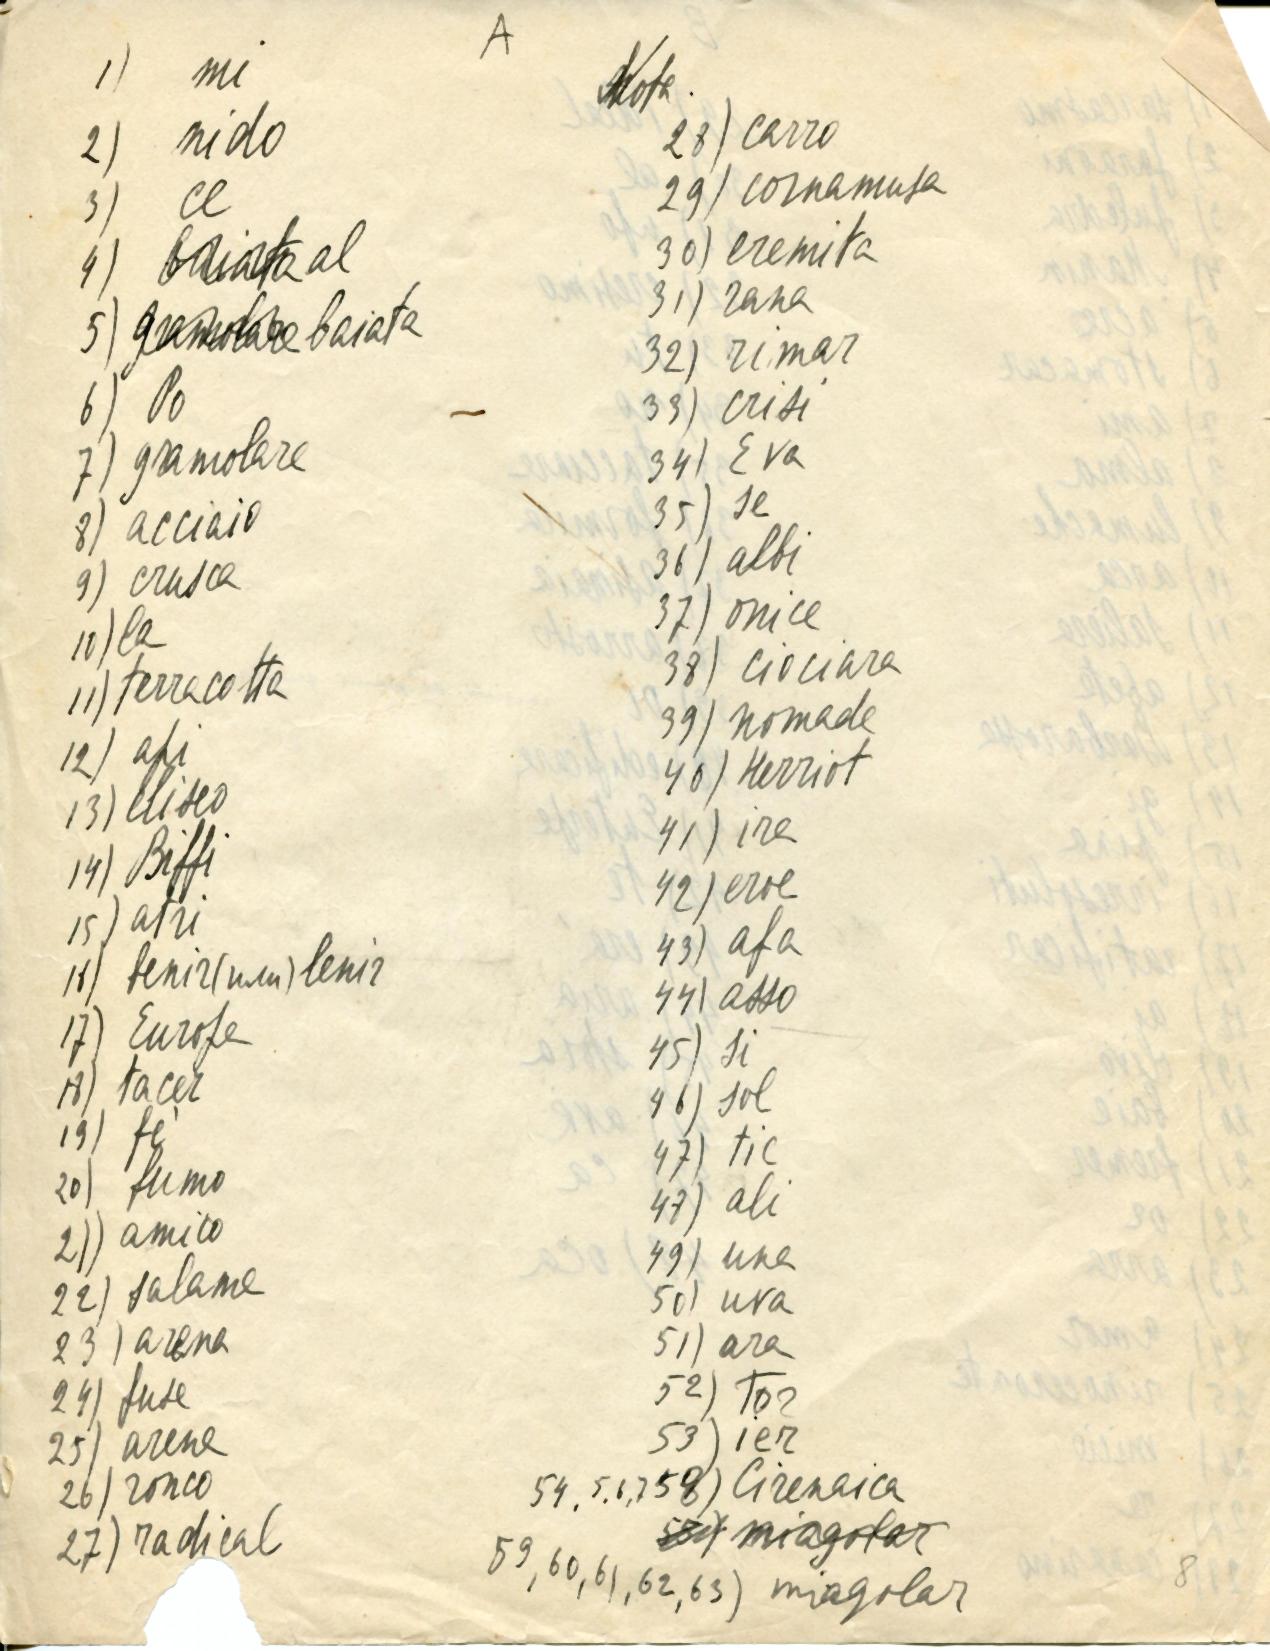 A
1) mi
2) nido
3) ce
4) baiata al
5) gramolare baiata
6) Po
7) gramolare
8) acciaio
9) crusca
10) la
11) terracotta
12) api
13) Eliseo
14) Biffi
15) atri
16) venir (или) lenir
17) Europa
18) tacer
19) fè
20) fumo
21) amico
22) salame
23) arena
24) fuse
25) arene
26) ronco
27) radical
Nota.
28) carro
29) cornamusa
30) eremita
31) rana
32) rimar
33) crisi
34) Eva
35) se
36) albi
37) onice
38) ciociara
39) nomade
40) Herriot
41) ira
42) eroe
43) afa
44) asso
45) si
46) sol
47) tic
48) ali
49) una
50) uva
51) ara
52) Tor
53) ier
54, 5,6,7 58) Cirenaica
miagolar
59, 60, 61, 62, 63) miagolar
8